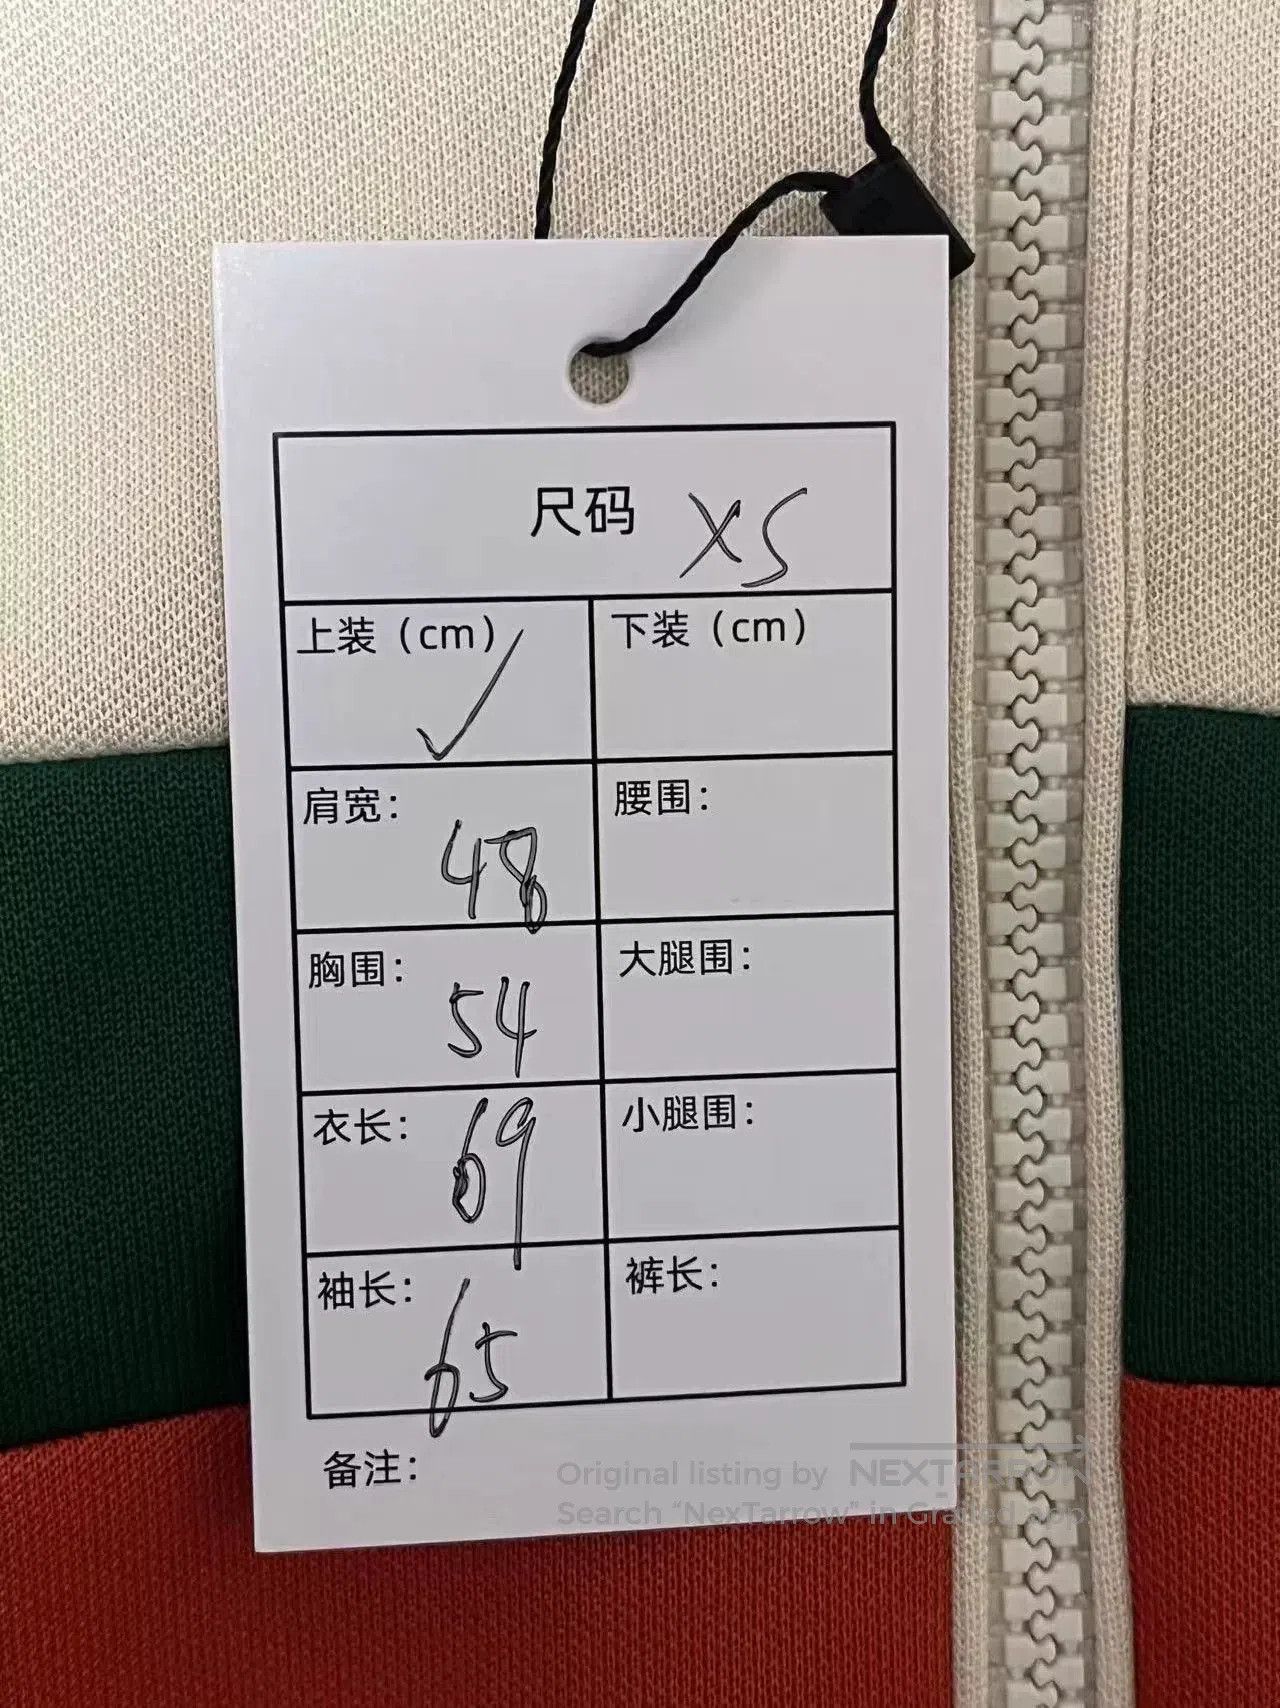 尺码 XS
上装（cm） 下装（cm）
✓
肩宽： 腰围：
48
胸围： 大腿围：
54
衣长： 69 小腿围：
袖长： 裤长：
65
备注：
Original listing by NEXTARROW
Search “NexTarrow” in Grailed app